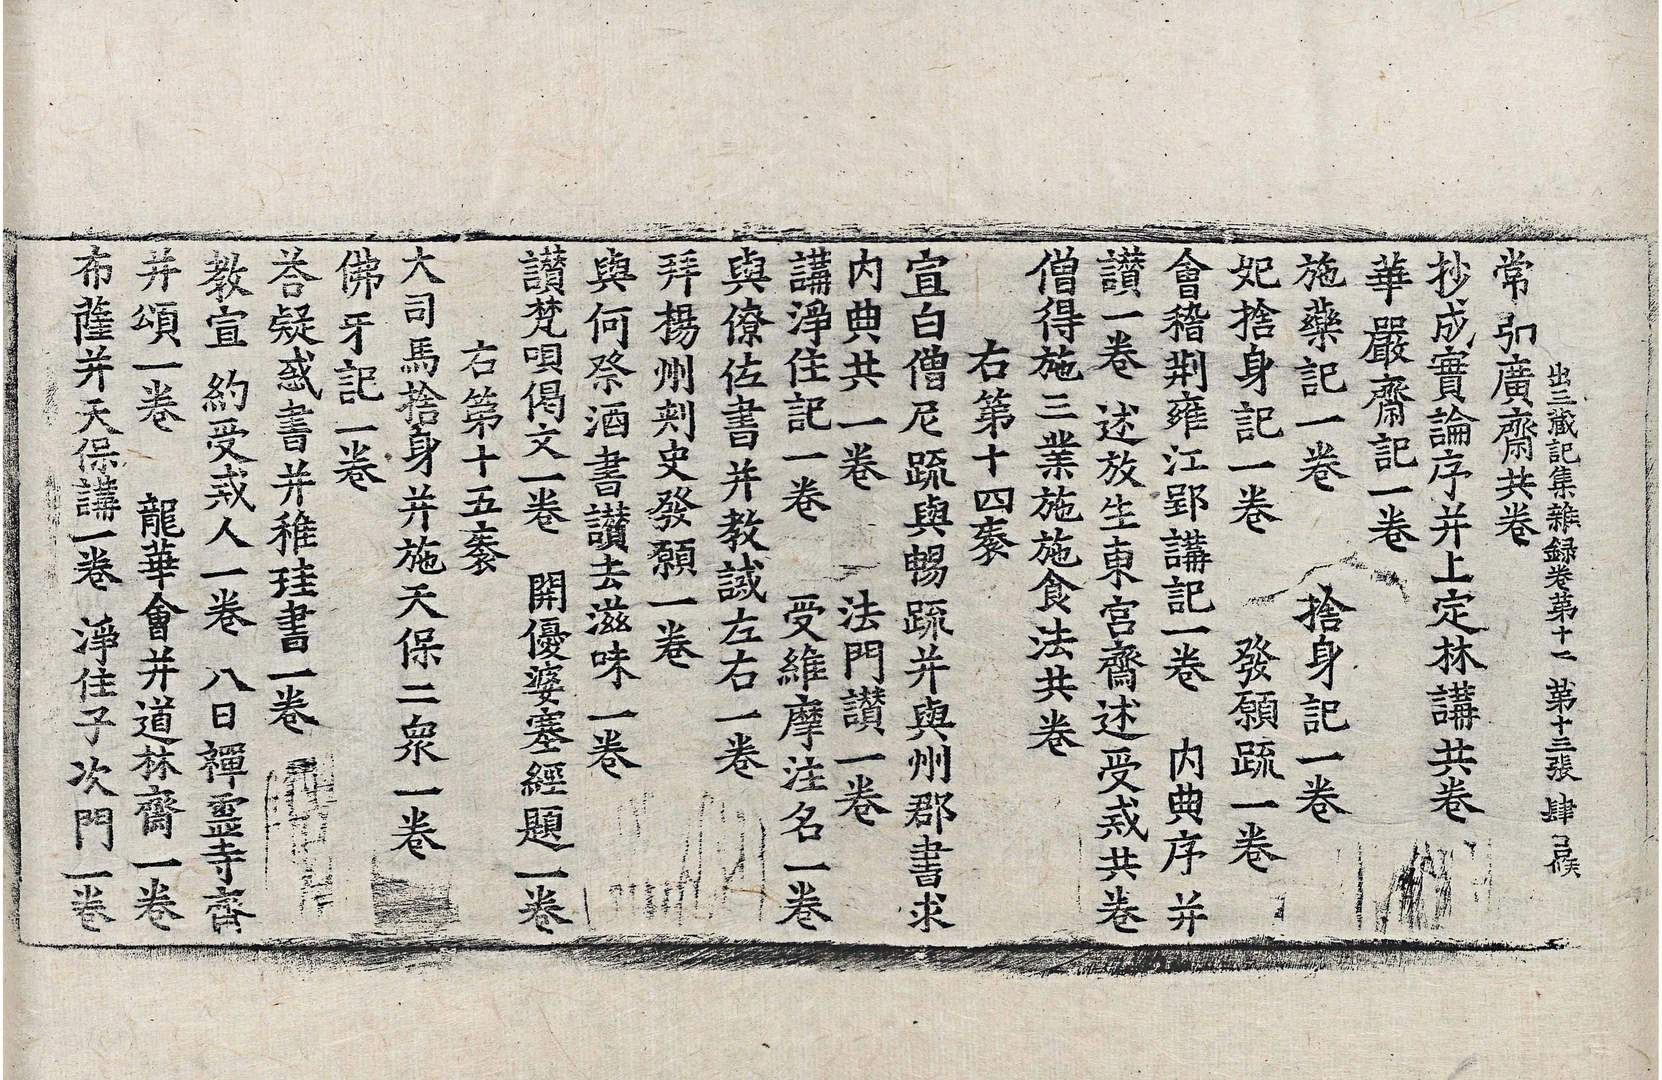 出三藏記集雜録卷第十二 第十三張 肆
常弘廣齋共卷
抄成實論序并上定林講共卷
華嚴齋記一卷
施藥記一卷 捨身記一卷
妃捨身記一卷 發願疏一卷
會稽荆雍江郢講記一卷 内典序并
讃一卷 述放生東宮齋述受戒共卷
僧得施三業施施食法共卷
右第十四袠
宣白僧尼疏與暢疏并與州郡書求
内典共一卷 法門讃一卷
講淨住記一卷 受維摩注名一卷
與僚佐書并教誡左右一卷
拜楊州刾史發願一卷
與何祭酒書讃去滋味一卷
讃梵唄偈文一卷 開優婆塞經題一卷
右第十五袠
大司馬捨身并施天保二衆一卷
佛牙記一卷
荅疑惑書并稚珪書一卷
教宣約受戒人一卷 八日禪靈寺齋
并頌一卷 龍華會并道林齋一卷
布薩并天保講一卷 淨住子次門一卷